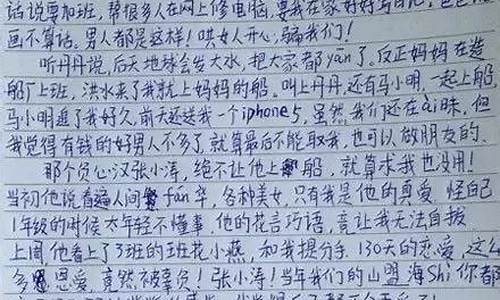 话说要加班，帮很多人在网上修电脑，要我在家好好写日记，爸爸
画不算话。男人都是这样！哄女人开心，骗我们！
听丹丹说，后天地球会发大水，把大家都yān了。反正妈妈在造
船厂上班，洪水来了我就上妈妈的船。叫上丹丹，还有马小明，一起上船
马小明追了我好久，前天还送我一个iphone5，虽然我们还在ài昧，但
我觉得有钱的好男人不多了，就算最后不能取我，也可以做朋友的。
那个负心汉张小涛，绝不让他上船，就算求我也没用！
当初他说看遍人间fán华，各种美女，只有我是他的真爱，怪自己
1年级的时候太年轻不懂事，他的花言巧语，竟让我无法自拔
上周他看上了3班的班花小燕，和我提分手，130天的恋爱，这么
多恩爱，竟然被辜负！张小涛！当年我们的山盟海Shì你都